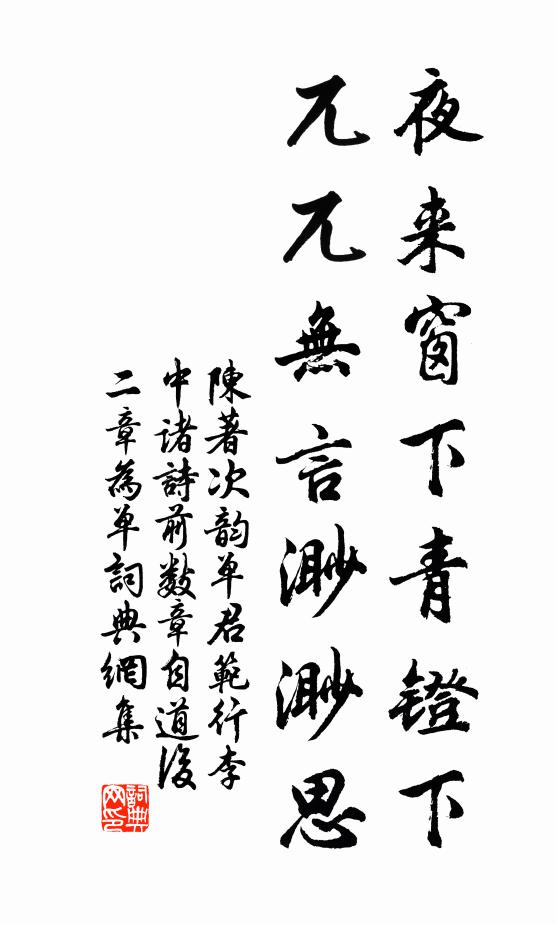 夜来窗下青镫下
兀兀無言渺渺思
陳著次韵单君範行李
中诸詩前数章自道後
二章為单詞典網集
詞典网印